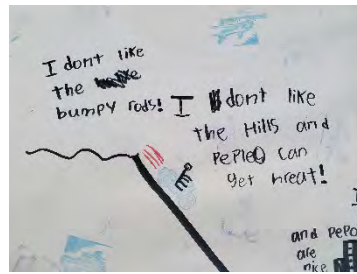 I dont like
the
bumpy rods!
I dont like
the Hills and
PePleO can
get hreat!
I
and PePo
are
nice